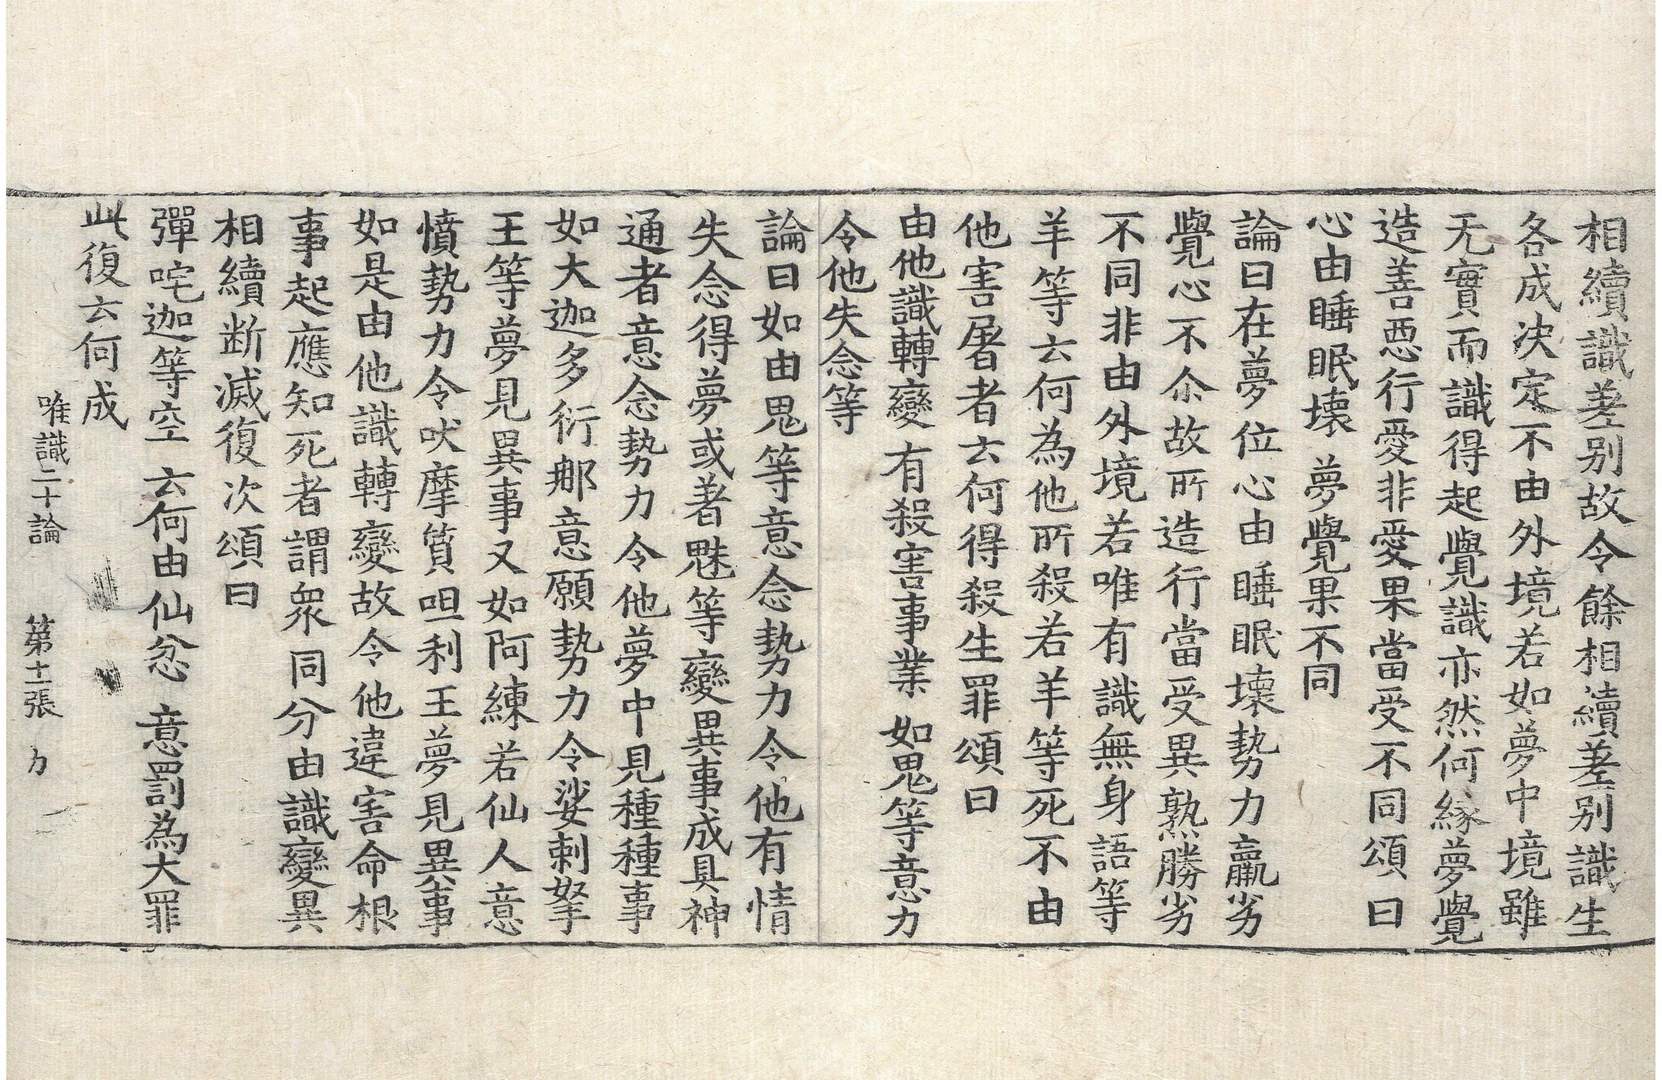 相續識差別故令餘相續差別識生
各成决定不由外境若如夢中境雖
无實而識得起覺識亦然何緣夢覺
造善惡行愛非愛果當受不同頌曰
心由睡眠壞　夢覺果不同
論曰在夢位心由睡眠壞勢力羸劣
覺心不尒故所造行當受異熟勝劣
不同非由外境若唯有識無身語等
羊等云何為他所殺若羊等死不由
他害屠者云何得殺生罪頌曰
由他識轉變　有殺害事業　如鬼等意力
令他失念等
論曰如由鬼等意念勢力令他有情
失念得夢或著魅等變異事成具神
通者意念勢力令他夢中見種種事
如大迦多衍那意願勢力令娑剌拏
王等夢見異事又如阿練若仙人意
憤勢力令吠摩質呾利王夢見異事
如是由他識轉變故令他違害命根
事起應知死者謂衆同分由識變異
相續断滅復次頌曰
彈咤迦等空　云何由仙忿　意罰為大罪
此復云何成
唯識二十論　第十一張　力